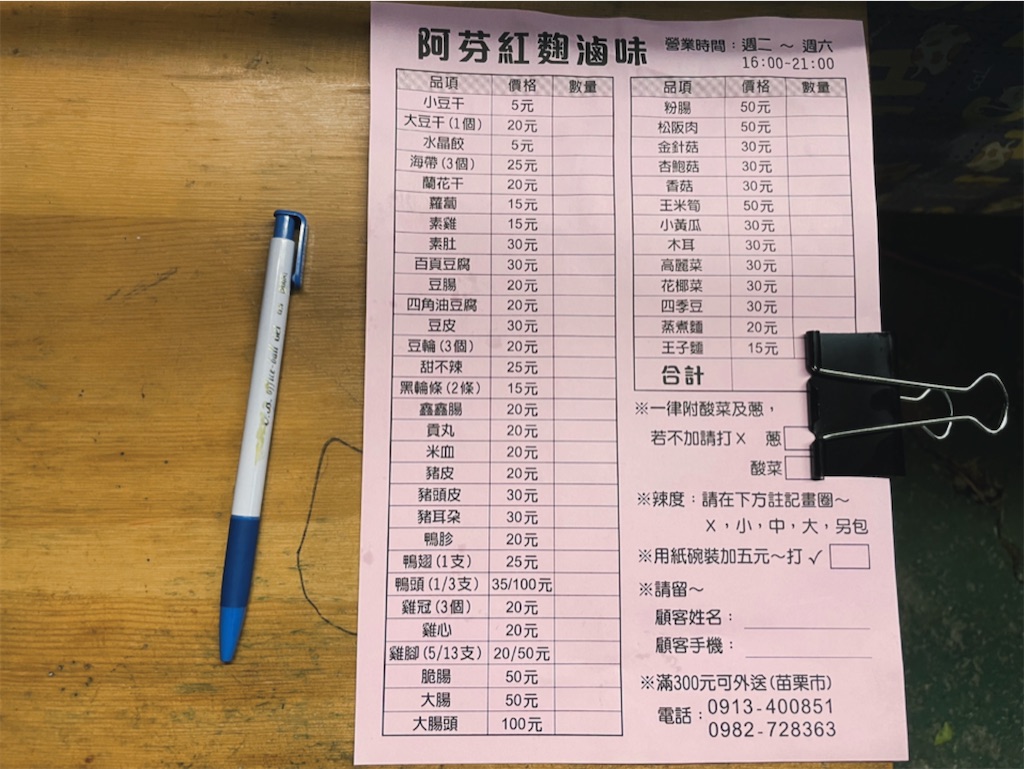 阿芬紅麴滷味
營業時間：週二 ～ 週六
16:00-21:00
品項 價格 數量
小豆干 5元
大豆干(1個) 20元
水晶餃 5元
海帶(3個) 25元
蘭花干 20元
蘿蔔 15元
素雞 15元
素肚 30元
百頁豆腐 30元
豆腸 20元
四角油豆腐 20元
豆皮 30元
豆輪(3個) 20元
甜不辣 25元
黑輪條(2條) 15元
鑫鑫腸 20元
貢丸 20元
米血 20元
豬皮 20元
豬頭皮 30元
豬耳朵 30元
鴨胗 20元
鴨翅(1支) 25元
鴨頭(1/3支) 35/100元
雞冠(3個) 20元
雞心 20元
雞腳(5/13支) 20/50元
脆腸 50元
大腸 50元
大腸頭 100元
品項 價格 數量
粉腸 50元
松阪肉 50元
金針菇 30元
杏鮑菇 30元
香菇 30元
玉米筍 50元
小黃瓜 30元
木耳 30元
高麗菜 30元
花椰菜 30元
四季豆 30元
蒸煮麵 20元
王子麵 15元
合計
※一律附酸菜及蔥，
若不加請打X 蔥
酸菜
※辣度：請在下方註記畫圈～
X，小，中，大，另包
※用紙碗裝加五元～打✓
※請留～
顧客姓名：
顧客手機：
※滿300元可外送(苗栗市)
電話：0913-400851
0982-728363